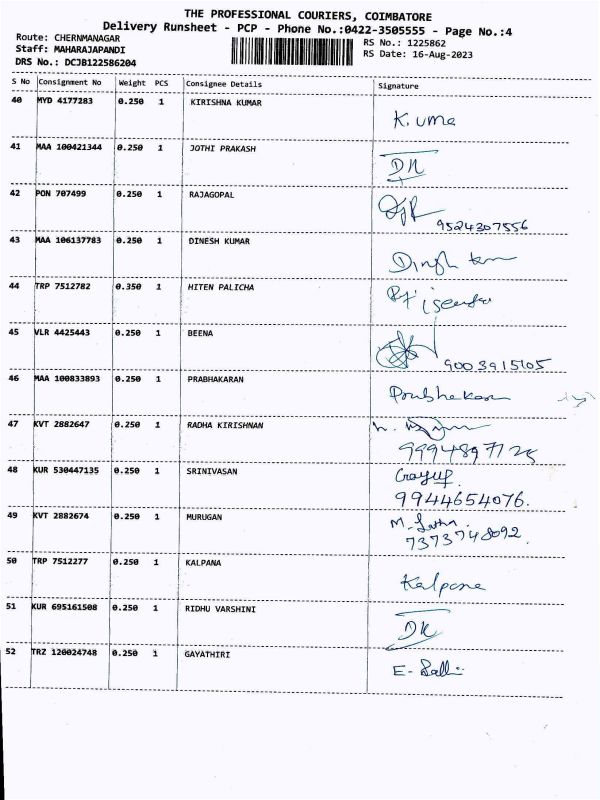 THE PROFESSIONAL COURIERS, COIMBATORE
Delivery Runsheet - PCP - Phone No.:0422-3505555 - Page No.:4
Route: CHERNMANAGAR
RS No.: 1225862
Staff: MAHARAJAPANDI
RS Date: 16-Aug-2023
DRS No.: DCJB122586204
S No Consignment No Weight PCS Consignee Details Signature
40 MYD 4177283 0.250 1 KIRISHNA KUMAR
K. uma
41 MAA 100421344 0.250 1 JOTHI PRAKASH
42 PON 707499 0.250 1 RAJAGOPAL
9524307556
43 MAA 106137783 0.250 1 DINESH KUMAR
44 TRP 7512782 0.350 1 HITEN PALICHA
45 VLR 4425443 0.250 1 BEENA
9003915105
46 MAA 100833893 0.250 1 PRABHAKARAN
Prabhakaran
47 KVT 2882647 0.250 1 RADHA KIRISHNAN
48 KUR 530447135 0.250 1 SRINIVASAN
9944654076.
49 KVT 2882674 0.250 1 MURUGAN
7373748092.
50 TRP 7512277 0.250 1 KALPANA
Kalpana
51 KUR 695161508 0.250 1 RIDHU VARSHINI
52 TRZ 120024748 0.250 1 GAYATHIRI